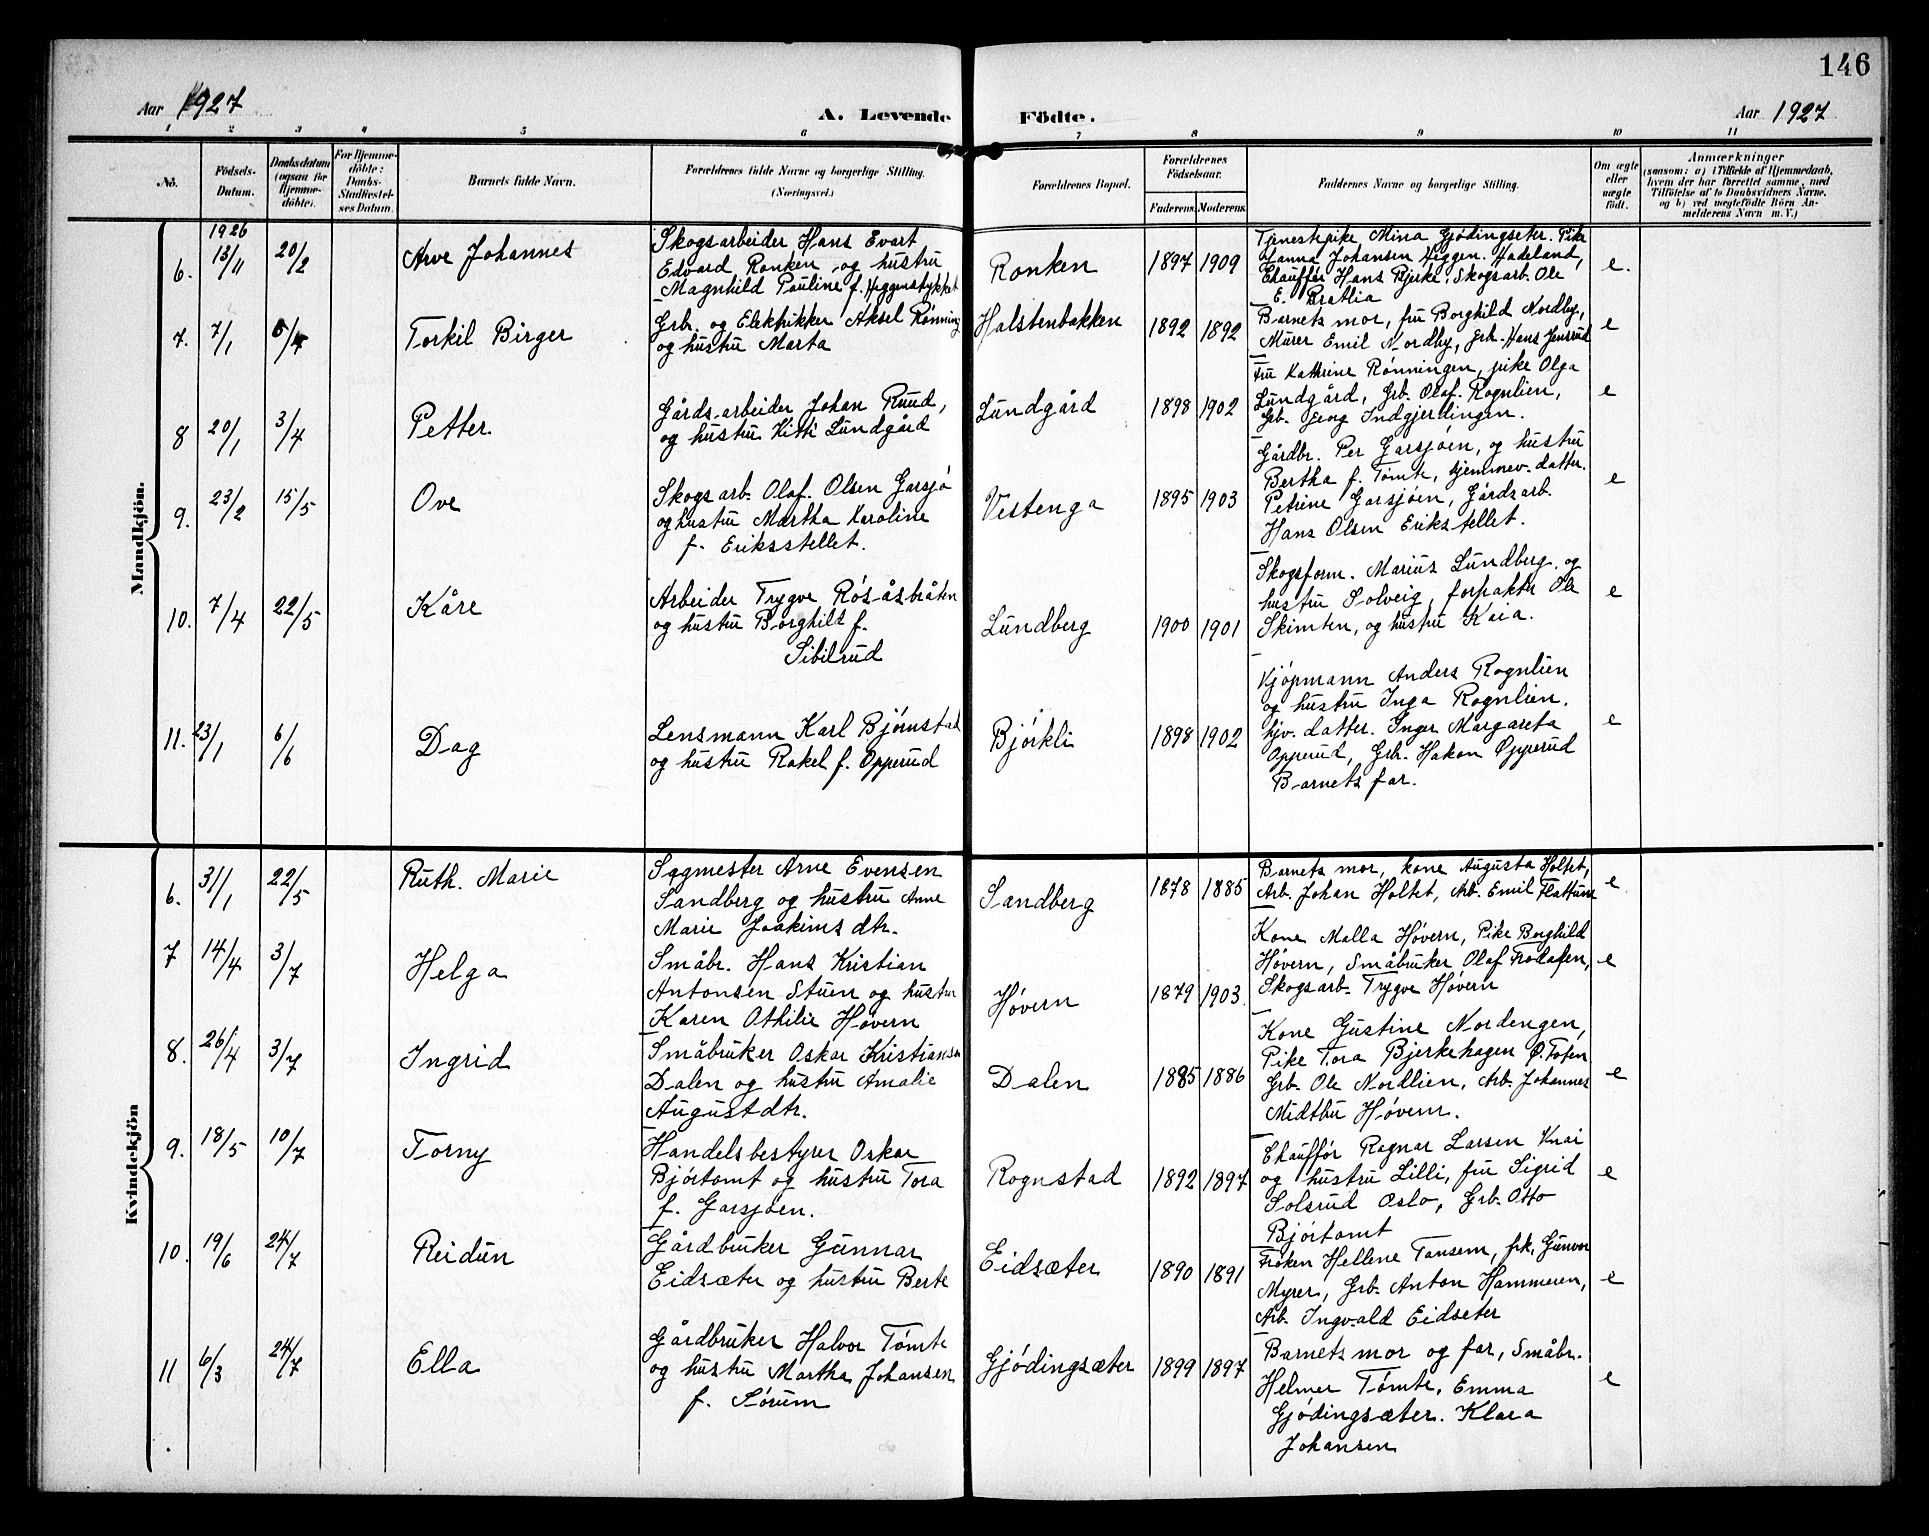 146
Aar 1927
A. Levende Födte.
Aar 1927
1 2 3 4 5 6 7 8 9 10 11
No.
Födsels-
Datum.
Daabsdatum
(ogsaa for
Hjemme-
döbte).
For Hjemme-
döbte:
Daabs-
Stadfæstel-
ses Datum.
Barnets fulde Navn.
Forældrenes fulde Navne og borgerlige Stilling.
(Næringsvei.)
Forældrenes Bopæl.
Forældrenes
Födselsaar.
Faderens. Moderens.
Faddernes Navne og borgerlige Stilling.
Om ægte
eller
uægte
födt.
Anmærkninger
(saasom: a) i Tilfælde af Hjemmedaab,
hvem der har forrettet samme, med
Tilföielse af to Daabsvidners Navne.
og b) ved uægtefödte Börn An-
melderens Navn m. V.)
Mandkjön.
6. 1926 13/11 20/2 Arve Johannes
Skogsarbeider Hans Evart
Edvard Ronken og hustru
Magnhild Pauline f. Heggenstykket
Ronken 1897 1909
Tjenestepike Mina Gjødingseter. Pike
Hanna Johansen Heggen. Hadeland,
Chauffør Hans Bjerke, Skogsarb. Ole
E. Bratlia
e.
7. 7/1 Torkil Birger
Grb. og Elektrikker Aksel Rønning
og hustru Marta
Halstenbakken 1892 1892
Barnets mor, fru Borghild Nordby,
Murer Emil Nordby, Grb. Hans Jensrud
e
8 20/1 3/4 Petter
Gårdsarbeider Johan Ruud,
og hustru Kitti Lundgård
Lundgård 1898 1902
Fru Kathrine Rønningen, pike Olga
Lundgård, Grb. Olaf Rognlien,
Grb. Georg Indgjerdingen.
e
9. 23/2 15/5 Ove
Skogsarb. Olaf Olsen Garsjø
og hustru Martha Karoline
f. Eriksstellet.
Vestenga 1895 1903
Gårdbr. Per Garsjøen, og hustru
Bertha f. Tømte, hjemmev. datter.
Petrine Garsjøen, Gårdsarb.
Hans Olsen Erikstellet.
e
10. 7/4 22/5 Kåre
Arbeider Trygve Røsåsbråten
og hustru Borghild f.
Sibilrud
Lundberg 1900 1901
Skogsform. Marius Lundberg og
hustru Solveig, forpakter Ole
Skimten, og hustru Kaia.
e
11. 23/1 6/6 Dag
Lensmann Karl Bjørnstad
og hustru Rakel f. Opperud
Bjørkli 1898 1902
Kjøpmann Anders Rognlien
og hustru Inga Rognlien.
hjv. datter. Inger Margareta
Opperud, Grb. Hakon Opperud
Barnets far.
e
Kvindekjön
6. 31/1 22/5 Ruth. Marie
Sagmester Arne Evensen
Sandberg og hustru Anne
Marie Joakimsdtr.
Sandberg 1878 1885
Barnets mor, kone Augusta Holtet,
Arb. Johan Holtet, Arb. Emil Flattum
e
7 14/4 3/7 Helga
Småbr. Hans Kristian
Antonsen Stuen og hustru
Karen Othilie Høvern
Høvern 1879 1903.
Kone Malla Høvern, Pike Borghild
Høvern, Småbruker Olaf
Skogsarb. Trygve Høvern
e
8. 26/4 3/7 Ingrid
Småbruker Oskar Kristiansen
Dalen og hustru Amalie
Augustdtr.
Dalen 1885 1886
Kone Gustine Nordengen,
Pike Tora Bjerkehagen Ø. Toten
Grb. Ole Nordlien, Arb. Johannes
Midtbu Høvern.
e
9. 18/5 10/7 Torny
Handelsbestyrer Oskar
Bjørtomt og hustru Tora
f. Garsjøen.
Rognstad 1892 1897
Chauffør Ragnar Larsen Knai
og hustru Lilli, fru Sigrid
Solsrud Oslo, Grb. Otto
Bjørtomt
e
10. 19/6 24/7 Reidun
Gårdbruker Gunnar
Eidsæter og hustru Berte
Eidsæter 1890 1891
Frøken Hellene Tansem, frk. Gunvor
Myrer, Grb. Anton Hammeren,
Arb. Ingvald Eidseter
e
11 6/3 24/7 Ella
Gårdbruker Halvor Tømte
og hustru Martha Johansen
f. Sørum
Gjødingsæter 1899 1897
Barnets mor og far, Småbr.
Helmer Tømte, Emma
Gjødingsæter. Klara
Johansen
e